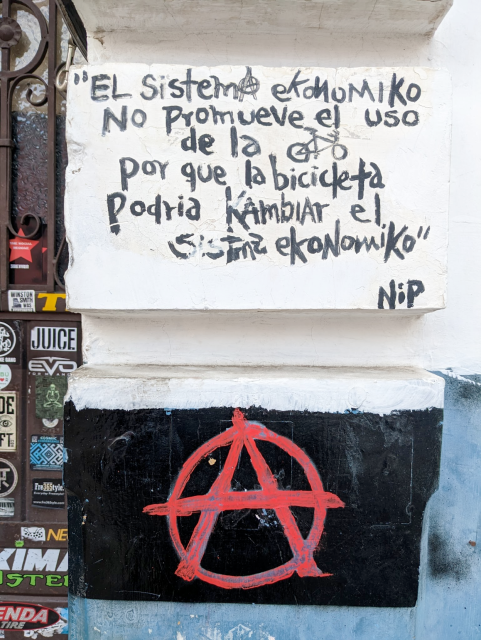 "EL SistemA ekonoMiko
No Promueve el uso
de la
por que la bicicleta
Podria KAMBIAR el
SISTEMA ekoNoMiKo"
NiP
WINSTON
SMITH
JUICE
EVO
Fre36style
NE
KIMA
STE
ENDA
TIRE